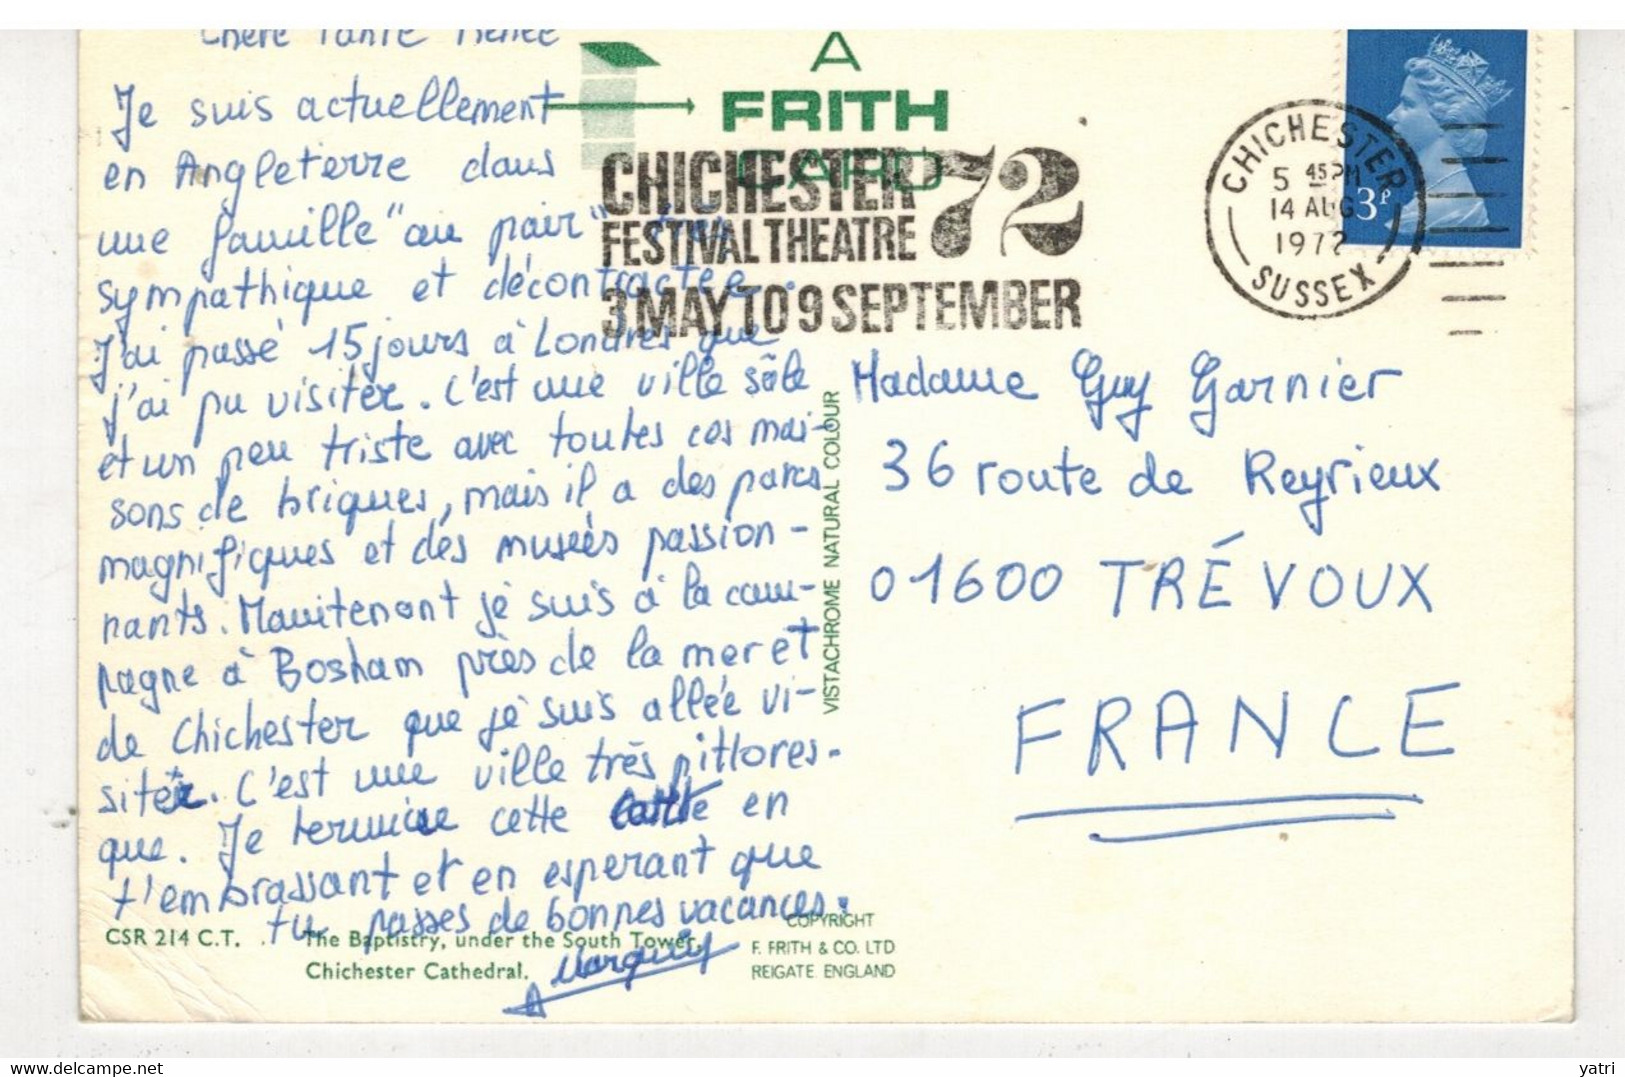 Chère Tante Renée
Je suis actuellement
en Angleterre dans
une famille "au pair" très
sympathique et décontractée.
J'ai passé 15 jours à Londres que
j'ai pu visiter. C'est une ville sâle
et un peu triste avec toutes ces mai-
sons de briques, mais il a des parcs
magnifiques et des musées passion-
nants. Maintenant je suis à la cam-
pagne à Bosham près de la mer et
de Chichester que je suis allée vi-
siter. C'est une ville très pittores-
que. Je termine cette carte en
t'embrassant et en esperant que
tu passes de bonnes vacances.
A
FRITH
CARD
CHICHESTER 72
FESTIVAL THEATRE
3 MAY TO 9 SEPTEMBER
CHICHESTER
5 45 PM
14 AUG
1972
SUSSEX
3P
Madame Guy Garnier
36 route de Reyrieux
01600 TRÉVOUX
FRANCE
VISTACHROME NATURAL COLOUR
CSR 214 C.T.
The Baptistry, under the South Tower,
Chichester Cathedral.
COPYRIGHT
F. FRITH & CO. LTD
REIGATE ENGLAND
www.delcampe.net
yatri